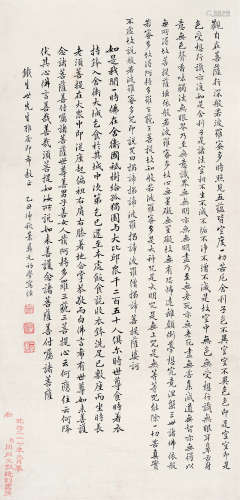 觀自在菩薩行深般若波羅蜜多時照見五蘊皆空度一切苦厄舍利子色不異空空不異色色即是空空即是
色受想行識亦復如是舍利子是諸法空相不生不滅不垢不淨不增不減是故空中無色無受想行識無眼耳鼻舌身
意無色聲香味觸法無眼界乃至無意識界無無明亦無無明盡乃至無老死亦無老死盡無苦集滅道無智亦無得以
無所得故菩提薩埵依般若波羅蜜多故心無罣礙無罣礙故無有恐怖遠離顛倒夢想究竟涅槃三世諸佛依般
若波羅蜜多故得阿耨多羅三藐三菩提故知般若波羅蜜多是大神咒是大明咒是無上咒是無等等咒能除一切苦真實
不虛故說般若波羅蜜多咒即說咒曰揭諦揭諦波羅揭諦波羅僧揭諦菩提薩婆訶
如是我聞一時佛在舍衛國祇樹給孤獨園與大比丘眾千二百五十人俱爾時世尊食時著衣
持鉢入舍衛大城乞食於其城中次第乞已還至本處飯食訖收衣鉢洗足已敷座而坐時長
老須菩提在大眾中即從座起偏袒右肩右膝著地合掌恭敬而白佛言希有世尊如來善護
念諸菩薩善付囑諸菩薩世尊善男子善女人發阿耨多羅三藐三菩提心云何應住云何降
伏其心佛言善哉善哉須菩提如汝所說如來善護念諸菩薩善付囑諸菩薩
先生雅屬即希 教 乙丑